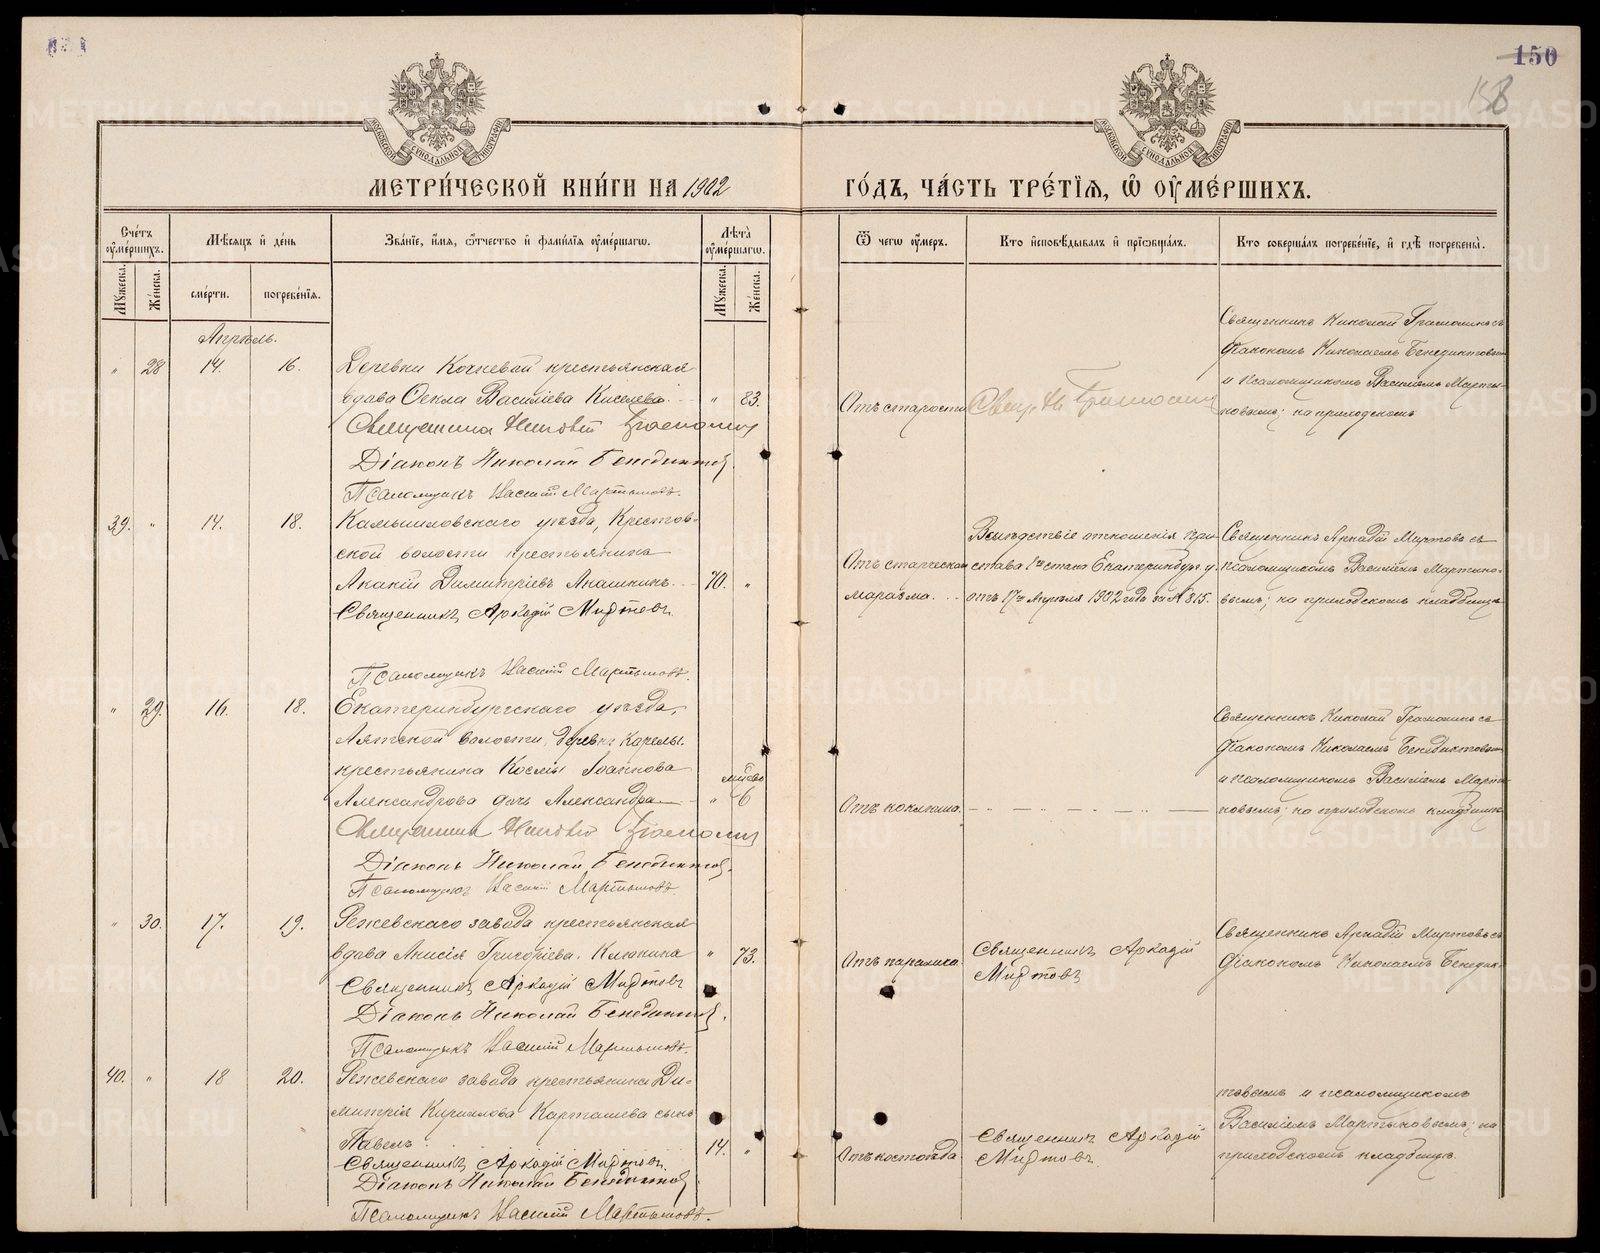 150
158
МЕТРИ́ЧЕСКОЙ КНИ́ГИ НА 1902
ГО́ДЪ, ЧА́СТЬ ТРЕ́ТІЯ, Ѿ ОУМЕ́РШИХЪ.
Счетъ оумершихъ.
Мѣсяцъ и день
Званіе, имя, отчество и фамилія оумершагѡ.
Лѣта оумершагѡ.
Ѿ чегѡ оумеръ.
Кто исповѣдывалъ и пріобщалъ.
Кто совершалъ погребеніе, и гдѣ погребены.
Мужеска.
Женска.
смерти.
погребенія.
Мужеска.
Женска.
Апрѣль.
" 28 14. 16. Деревни Кочневой крестьянская
вдова Ѳекла Василіева Киселева. " 83.
Священникъ Николай Грамолинъ
Діаконъ Николай Бенедиктовъ.
Псаломщикъ Василій Мартыновъ.
Отъ старости
Свящ. Н. Грамолинъ
Священникъ Николай Грамолинъ съ
діакономъ Николаемъ Бенедиктовым
и псаломщикомъ Василіемъ Марты-
новымъ; на приходскомъ
39. " 14. 18. Камышловскаго уѣзда, Крестов-
ской волости крестьянинъ
Акакій Димитріевъ Акашкинъ. 70. "
Священникъ Аркадій Миртовъ.
Псаломщикъ Василій Мартыновъ.
Отъ старческаго
маразма.
Вслѣдствіе отношенія при-
става 1го стана Екатеринбург. у.
отъ 17го Апрѣля 1902 года за № 815.
Священникъ Аркадій Миртовъ съ
псаломщикомъ Василіемъ Мартыно-
вымъ; на приходскомъ кладбищѣ
" 29. 16. 18. Екатеринбургскаго уѣзда,
Аятской волости, деревни Корелы.
крестьянина Космы Іоаннова
Александрова дочь Александра " 6
Священникъ Николай Грамолинъ
Діаконъ Николай Бенедиктовъ.
Псаломщикъ Василій Мартыновъ.
Отъ коклюша.
Священникъ Николай Грамолинъ съ
діакономъ Николаемъ Бенедиктовым
и псаломщикомъ Василіемъ Марты-
новымъ; на приходскомъ кладбищѣ
" 30. 17. 19. Режевскаго завода крестьянская
вдова Анисія Григоріева Клюкина " 73.
Священникъ Аркадій Миртовъ
Діаконъ Николай Бенедиктовъ.
Псаломщикъ Василій Мартыновъ.
Отъ паралича.
Священникъ Аркадій
Миртовъ
Священникъ Аркадій Миртовъ съ
діакономъ Николаемъ Бенедик-
40. " 18 20. Режевскаго завода крестьянина Ди-
митрія Кириллова Карташева сынъ
Павелъ 14. "
Священникъ Аркадій Миртовъ.
Діаконъ Николай Бенедиктовъ
Псаломщикъ Василій Мартыновъ.
Отъ костоѣда
Священникъ Аркадій
Миртовъ.
товымъ и псаломщикомъ
Василіемъ Мартыновымъ; на
приходскомъ кладбищѣ.